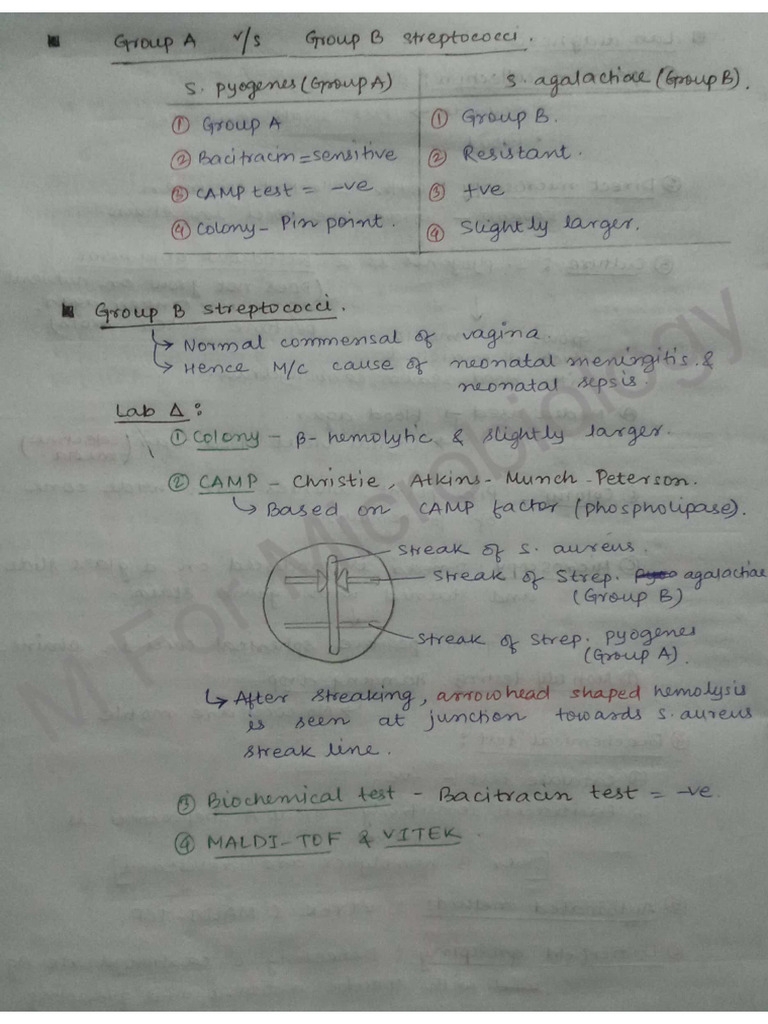 Group A v/s Group B streptococci.
S. pyogenes (Group A) S. agalactiae (Group B).
① Group A ① Group B.
② Bacitracin = sensitive ② Resistant.
③ CAMP test = -ve ③ +ve
④ Colony - Pin point. ④ Slightly larger.
Group B streptococci.
↳ Normal commensal of vagina.
↳ Hence M/C cause of neonatal meningitis &
neonatal sepsis.
Lab Δ:
① Colony - β-hemolytic & slightly larger.
② CAMP - Christie, Atkins - Munch - Peterson.
↳ Based on CAMP factor (phospholipase).
streak of S. aureus.
streak of Strep. agalactiae
(Group B)
streak of Strep. pyogenes
(Group A).
↳ After streaking, arrowhead shaped hemolysis
is seen at junction towards S. aureus
streak line.
③ Biochemical test - Bacitracin test = -ve.
④ MALDI-TOF & VITEK.
M For Microbiology